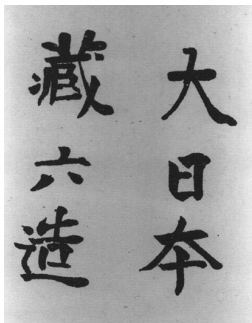 大日本
藏六造